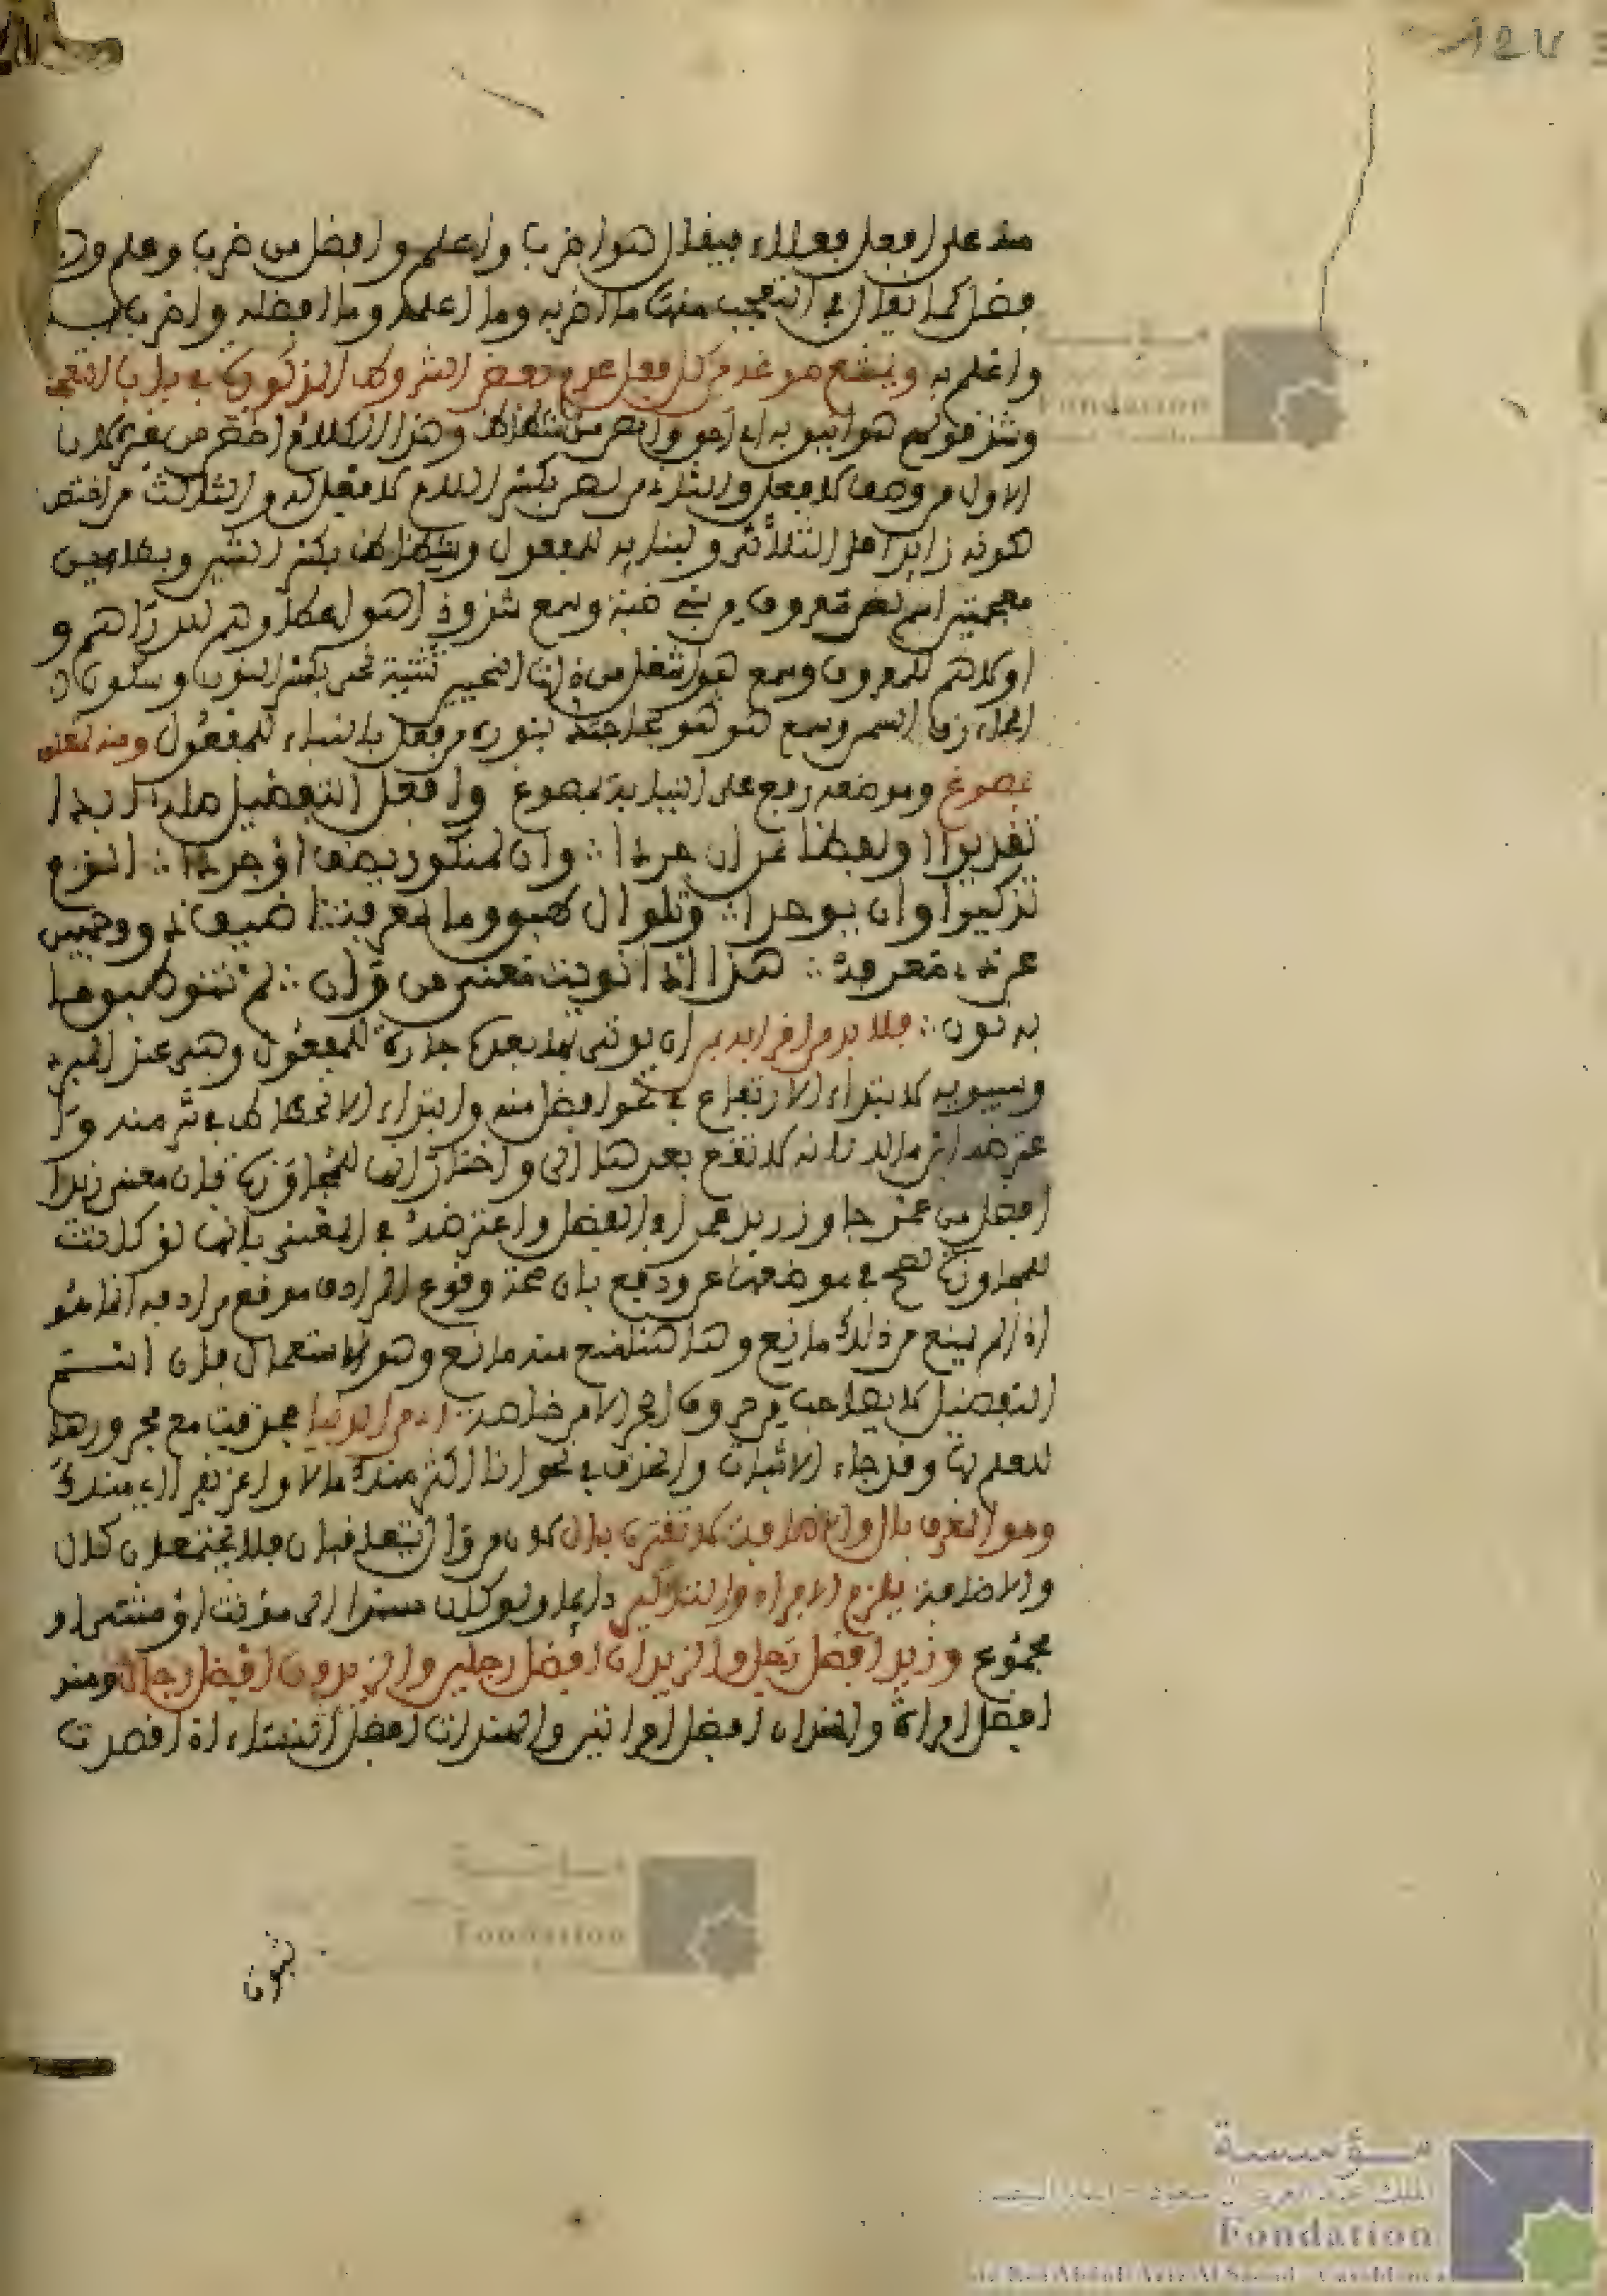 منه على افعل فعلاء فيقال هو اضرب واعلم وافضل من ضرب وعلم و
فضل كما يقال في التعجب منها ما اضربه وما اعلمه وما افضله واضرب به
واعلم به ويمتنع صوغه من كل فعل عدم بعض الشروط المذكورة في باب التعجب
وشذ قولهم هو ابين به اي احق والص من شظاظ وهذا الكلام اختصر من غير كلاب
الاول من وصف لا فعل والثاني من لص بكسر اللام لا فعل له والثالث من اختص
كونه زايدا على الثلاثي ولبنايه للمفعول وشظاظ بكسر الشين وبظاءين
معجمتين اسم لص معروف من بني ضبة وسمع شذوذا هو اعطاهم للدراهم و
اولاهم للمعروف وسمع هو اشغل من ذات النحيين تثنية نحي بكسر النون وسكون
الحاء زق السمن وسمع هو هو بحاجتك بنوه من فعل بالبناء للمفعول ومنه تعلق
بصوغ وموضعه رفع على النيابة لمصوغ وافعل التفضيل صله ابدا
تقديرا او لفظا بمن ان جردا ∴ وان لمنكور يضف او جردا ∴ الزم
تذكيرا وان يوحدا ∴ وتلو ال طبق وما لمعرفة اضيف ذو وجهين
عن ذي معرفة ∴ هذا اذا نويت معنى من وان ∴ لم تنو فهو طبق ما
به قرن ∴ فلا بد من افراديه ان يوتى بها بعده جارة للمفضول وهي عند المبرد
وسيبويه لابتداء الارتفاع في نحو افضل منه وابتداء الانحطاط في شر منه و
اعترضه ابن مالك بانه لا تقع بعدها الى واختار انها للمجاوزة فان معنى زيد
افضل من عمرو جاوز زيد عمرا في الفضل واعترضه في المغني بانها لو كانت
للمجاوزة لصح في موضعها عن ودفع بان صحة وقوع المرادف موقع مرادفه انما هو
اذا لم يمنع من ذلك مانع وهاهنا منع منه مانع وهو الاستعمال فان اسم
التفضيل لا يصاحب من حروف الجر الا من خاصة ∴ مجرورها حذفت مع مجرورها
للعلم بها وقد جاء الاثبات والحذف في نحو انا اكثر منك مالا واعز نفرا اي منك
وهو المعرف بال والاضافة لا تقترن بال لكون من وال يتعاقبان فلا يجتمعان كال
والاضافة يلزم الافراد والتذكير دايما ولو كان مسندا الى مؤنث او مثنى او
مجموع وزيد افضل رجل والزيدان افضل رجلين والزيدون افضل رجال وهند
افضل امراة والهندان افضل امراتين والهندات افضل نساء اذا قصدت
ثبوت
مؤسسة
الملك عبد العزيز آل سعود - الدار البيضاء
Fondation
du Roi Abdul-Aziz Al Saoud - Casablanca